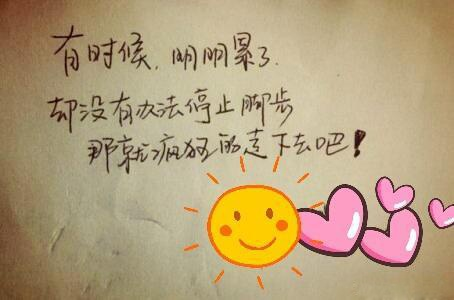 有时候,明明累了.
却没有办法停止脚步
那就疯狂的走下去吧!